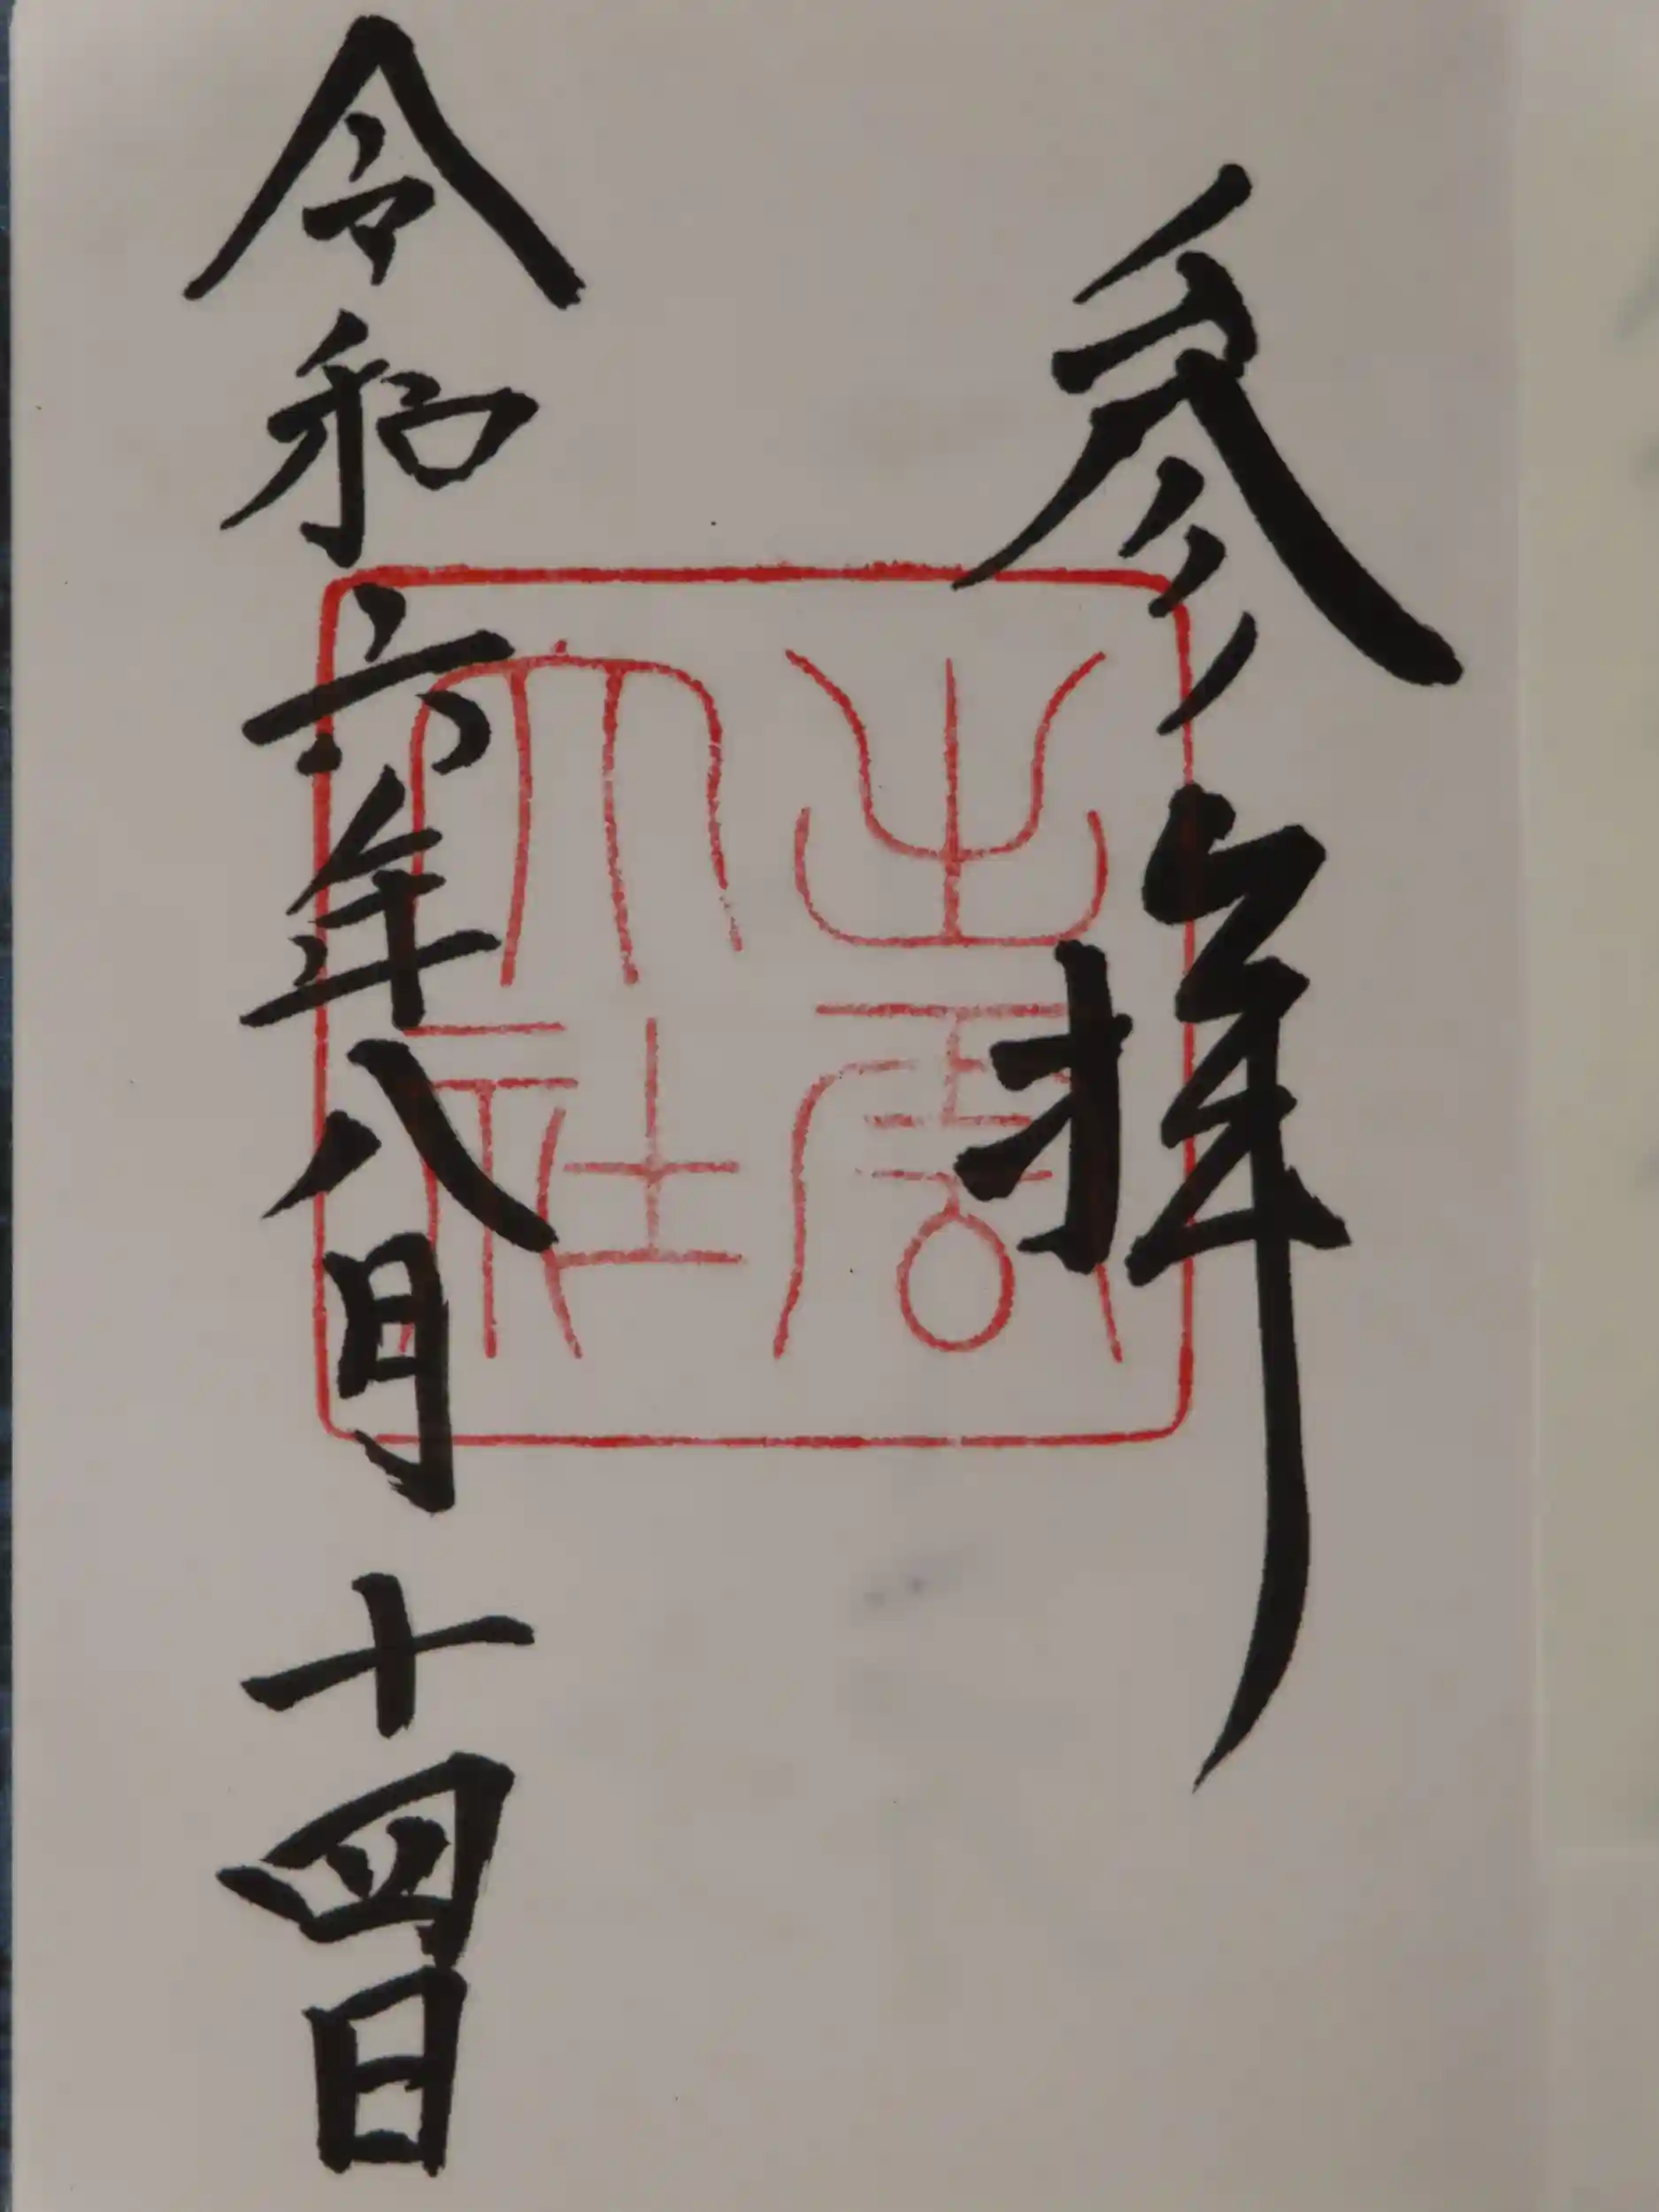 参拝
出雲
大社
令和六年八月十四日